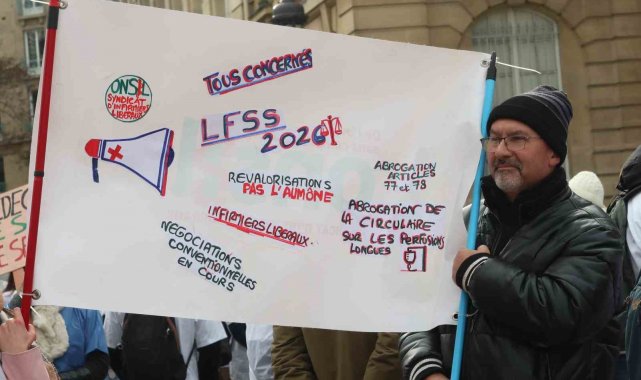 TOUS CONCERNÉS
ONSIL
SYNDICAT
D'INFIRMIERS
LIBERAUX
LFSS
2026
REVALORISATIONS
PAS L'AUMÔNE
INFIRMIERS LIBERAUX.
NEGOCIATIONS
CONVENTIONNELLES
EN COURS
ABROGATION
ARTICLES
77 et 78
ABROGATION DE
LA CIRCULAIRE
SUR LES PERFUSIONS
LONGUES